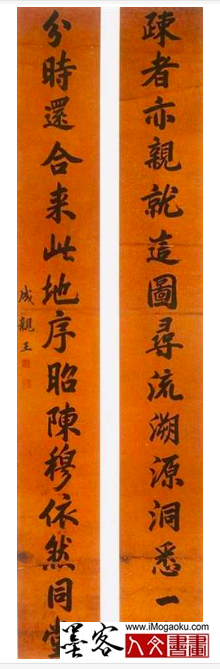 疎者亦親就這圖尋流溯源洞悉一
分時還合来此地序昭陳穆依然同堂
成親王
www.iMogaoku.com
墨客